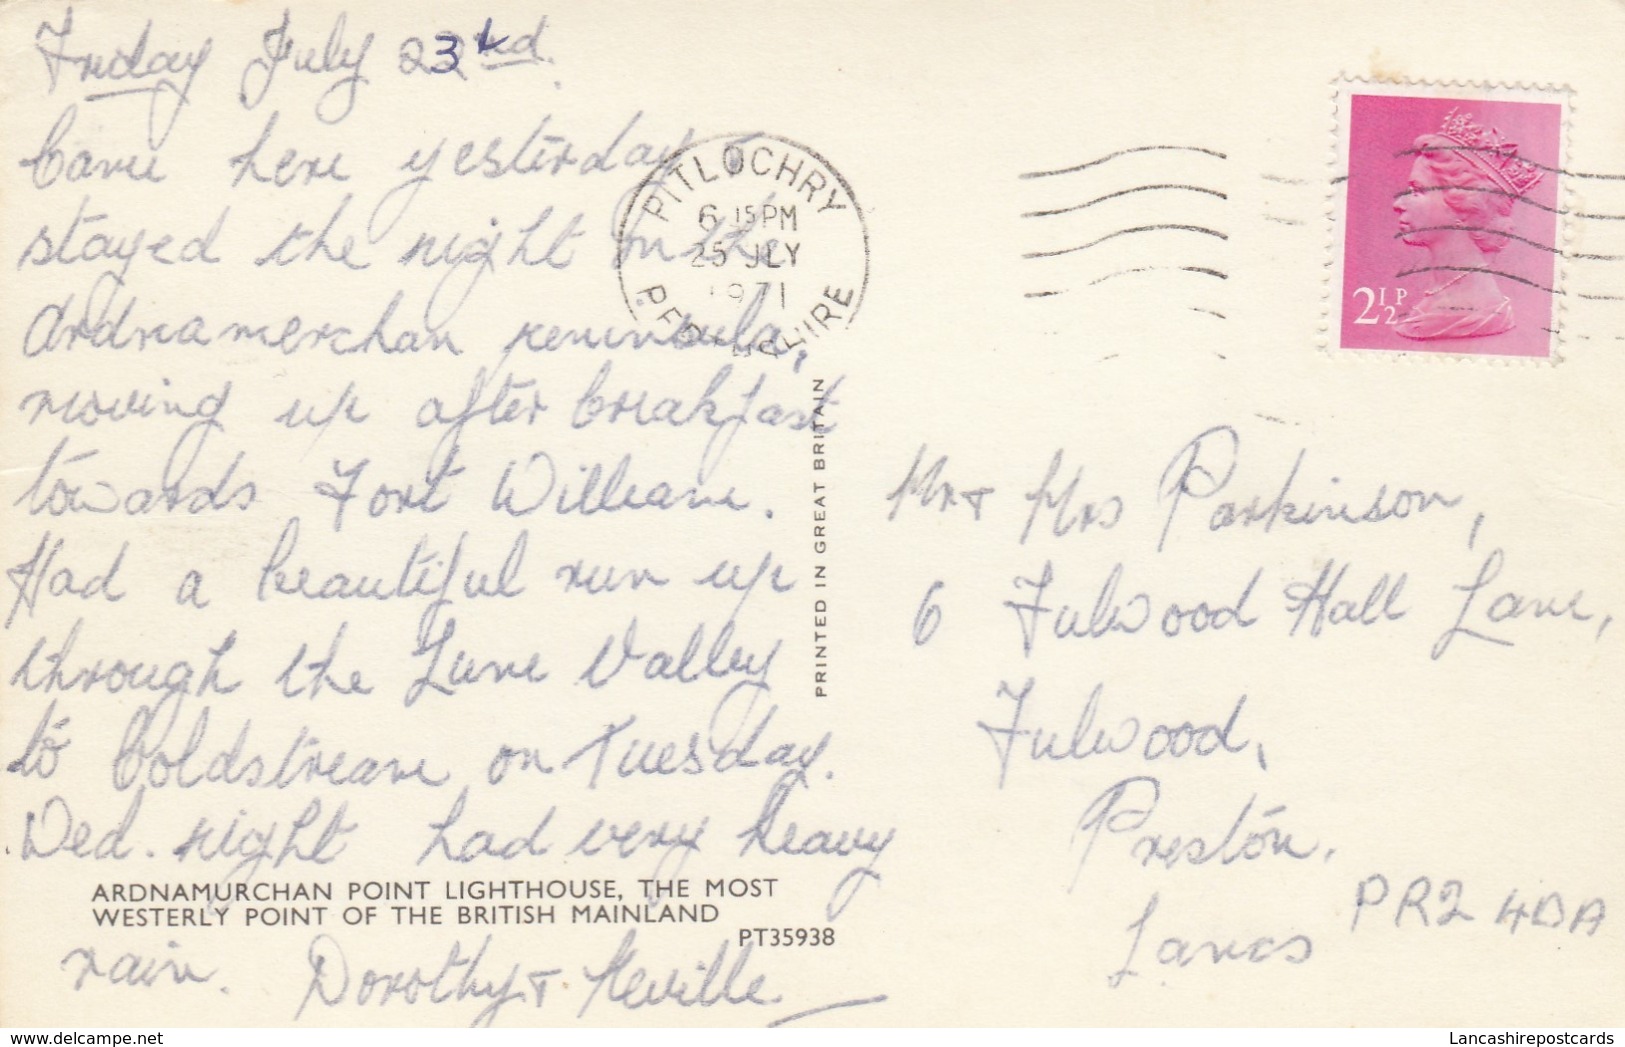 Friday July 23rd.
Came here yesterday
stayed the night on the
Ardnamerchan peninsula,
moving up after breakfast
towards Fort William.
Had a beautiful run up
through the Lune Valley
to Coldstream on Tuesday.
Wed. night had very heavy
ARDNAMURCHAN POINT LIGHTHOUSE, THE MOST
WESTERLY POINT OF THE BRITISH MAINLAND
PT35938
rain. Dorothy + Neville
PRINTED IN GREAT BRITAIN
PITLOCHRY
6 15PM
25 JLY
1971
2½P
Mr + Mrs Parkinson,
6 Fulwood Hall Lane,
Fulwood,
Preston.
Lancs PR2 4DA
Lancashirepostcards
delcampe.net